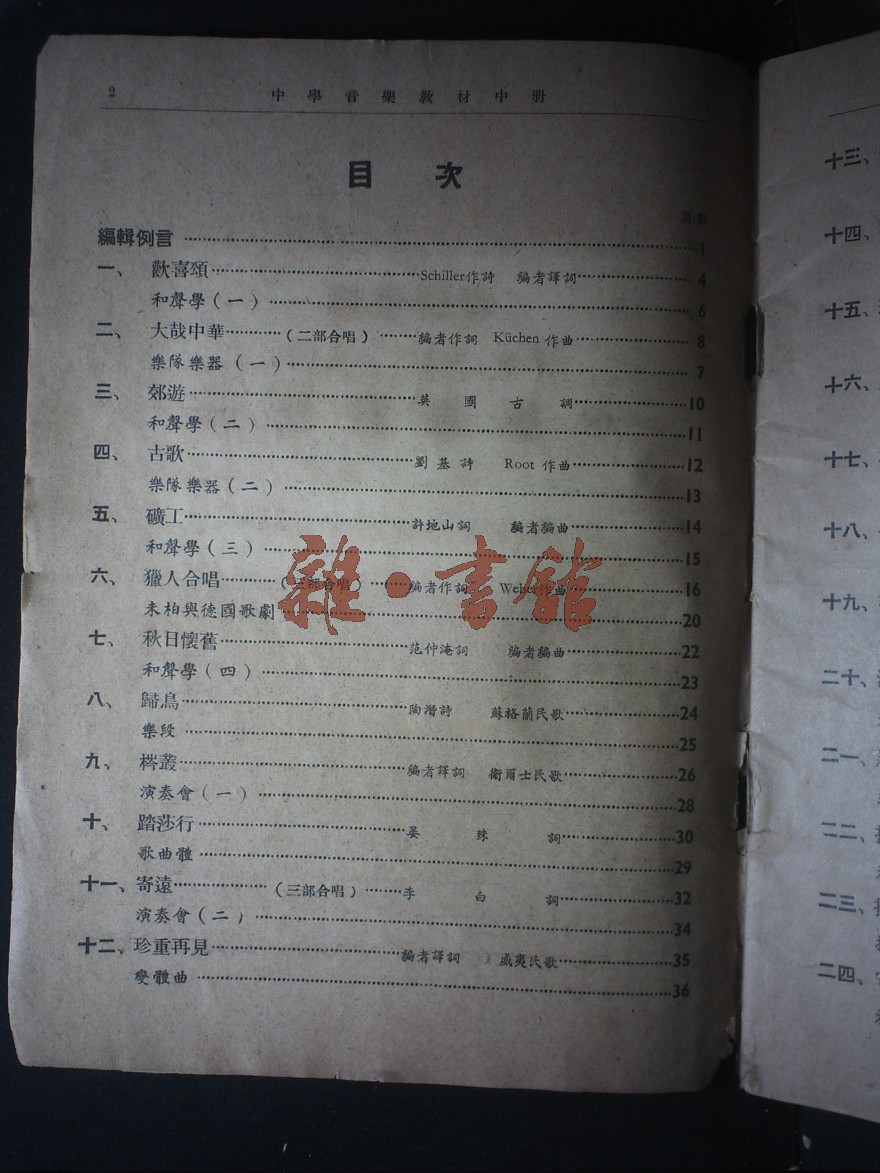 2 中學音樂教材中册
目次
頁數
編輯例言 1
一、 歡喜頌 Schiller作詩 編者譯詞 4
和聲學(一) 6
二、 大哉中華 (二部合唱) 編者作詞 Küchen 作曲 8
樂隊樂器 (一) 7
三、 郊遊 英國古調 10
和聲學(二) 11
四、 古歌 劉基詩 Root 作曲 12
樂隊樂器(二) 13
五、 礦工 許地山詞 編者編曲 14
和聲學(三) 15
六、 獵人合唱 (三部合唱) 編者作詞 Weber作曲 16
韋柏與德國歌劇 20
七、 秋日懷舊 范仲淹詞 編者編曲 22
和聲學(四) 23
八、 歸鳥 陶潛詩 蘇格蘭民歌 24
樂段 25
九、 梣叢 編者譯詞 衛爾士民歌 26
演奏會(一) 28
十、 踏莎行 晏殊詞 30
歌曲體 29
十一、寄遠 (三部合唱) 李白詞 32
演奏會(二) 34
十二、珍重再見 編者譯詞 威夷民歌 35
變體曲 36
十三、
十四、
十五、
十六、
十七、
十八、
十九、
二十、
二一、
二二、
二三、
二四、
雜·書館